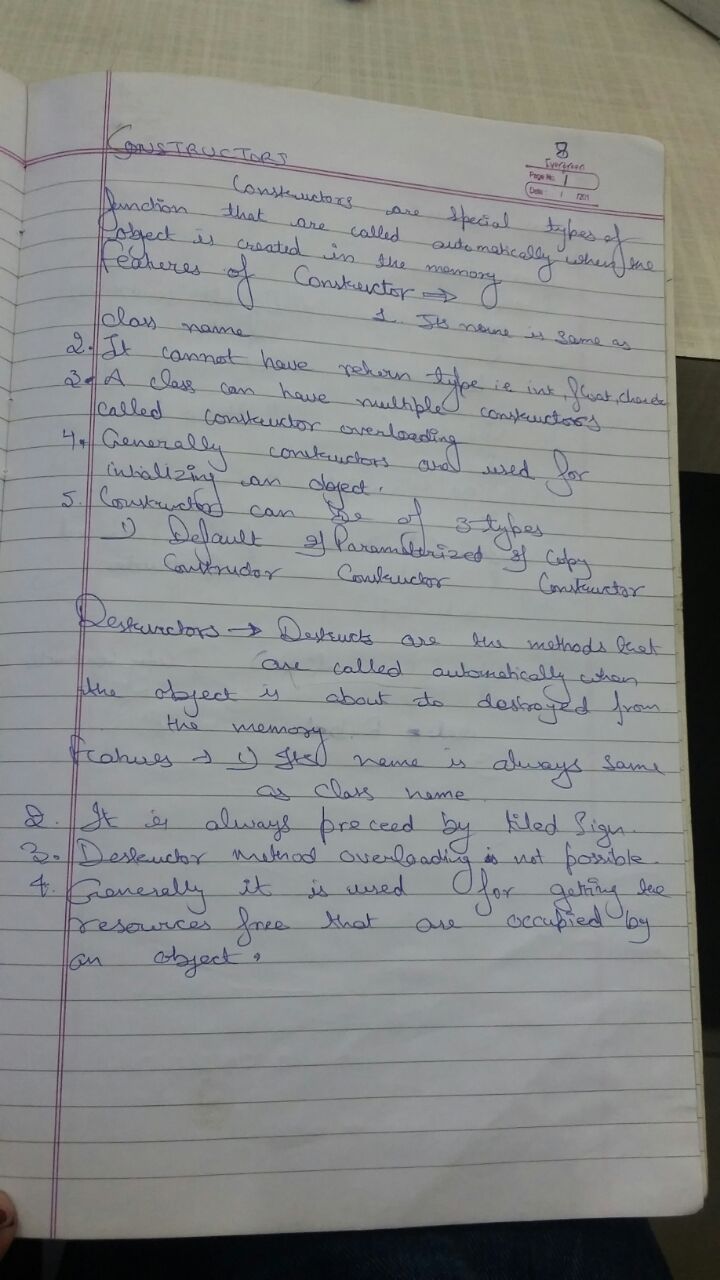 CONSTRUCTORS
8
Evergreen
Page No. 1
Date: / /201
Constructors are special types of
function that are called automatically when the
object is created in the memory
Features of Constructor ⇒
1. Its name is same as
class name
2. It cannot have return type ie int, float, char etc
3. A class can have multiple constructors
called constructor overloading
4. Generally constructors are used for
initializing an object.
5. Constructors can be of 3 types
1) Default 2) Parameterized 3) Copy
Constructor Constructor Constructor
Destructors → Destructs are the methods that
are called automatically when
the object is about to destroyed from
the memory
Features → 1) Its name is always same
as class name
2. It is always preceed by tiled Sign.
3. Destructor method overloading is not possible.
4. Generally it is used for getting the
resources free that are occupied by
an object.